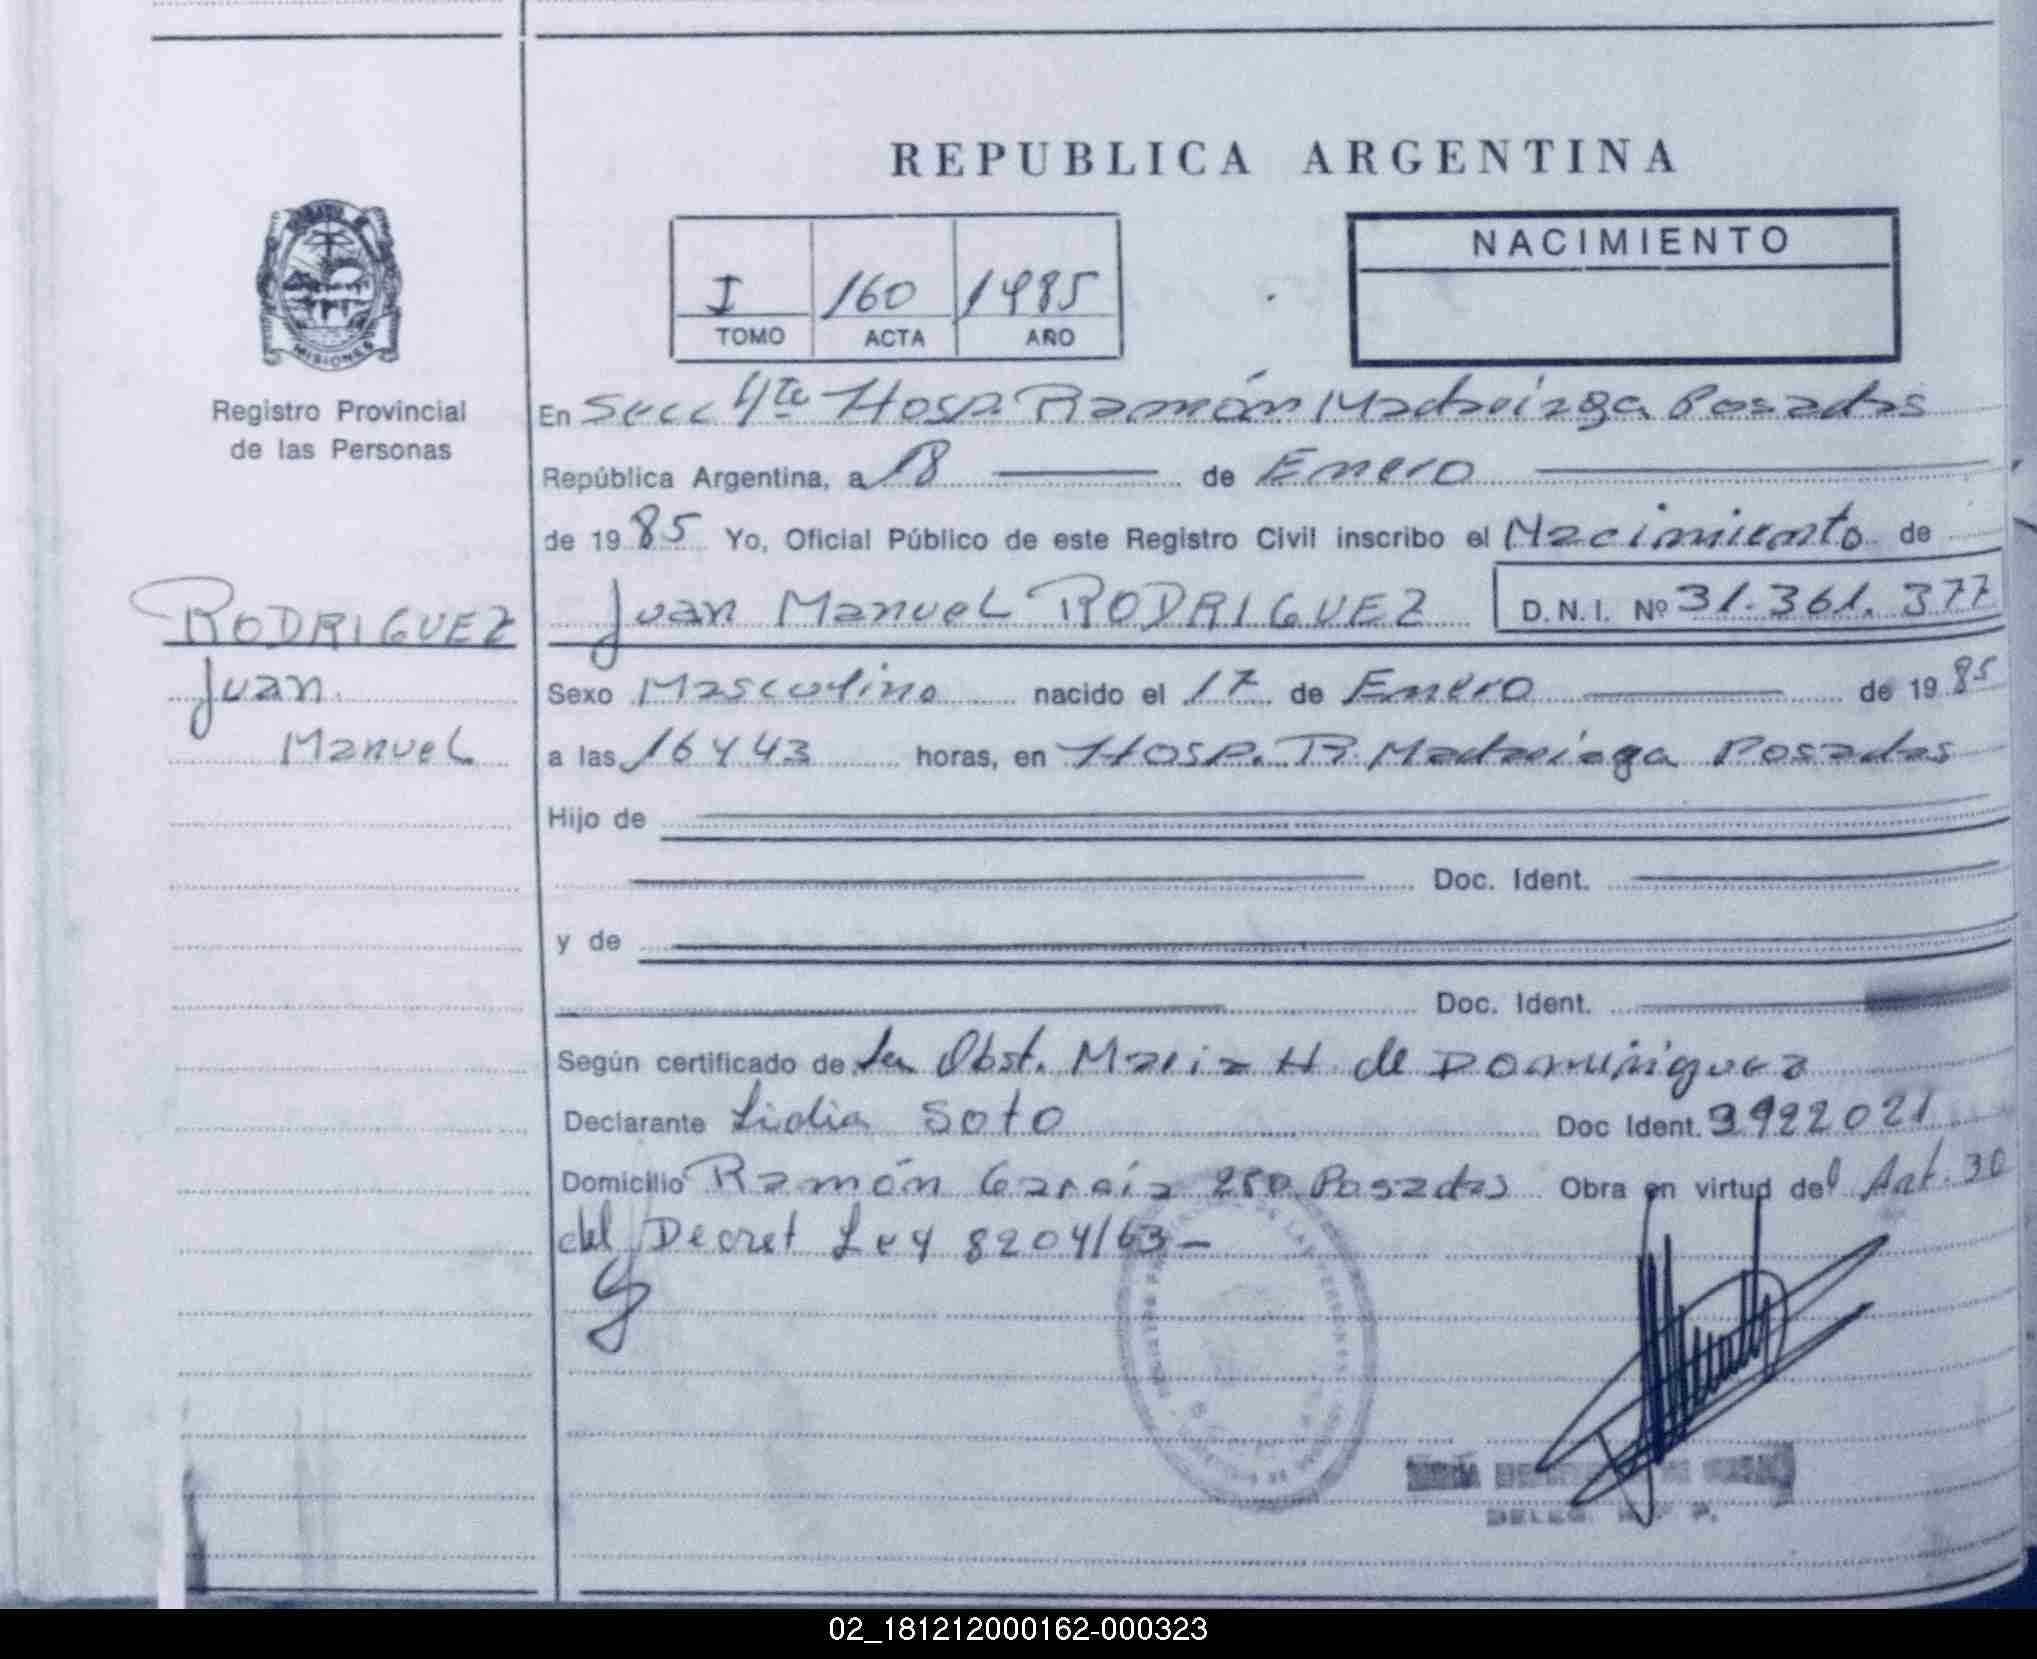 REPUBLICA ARGENTINA
NACIMIENTO
I 160 1985
TOMO ACTA AÑO
MISIONES
Registro Provincial
de las Personas
En Secc 4ta Hosp. Ramón Madariaga Posadas
República Argentina, a 18 de Enero
de 1985 Yo, Oficial Público de este Registro Civil inscribo el Nacimiento de
RODRIGUEZ
Juan
Manuel
Juan Manuel RODRIGUEZ D.N.I. Nº 31.361.377
Sexo Masculino nacido el 17 de Enero de 1985
a las 16 y 43 horas, en Hosp. R. Madariaga Posadas
Hijo de
Doc. Ident.
y de
Doc. Ident.
Según certificado de la Obst. Maria H de Dominguez
Declarante Lidia Soto Doc Ident. 3922021
Domicilio Ramón García 280 Posadas Obra en virtud del Art. 30
del Decret Ley 8204/63-
DELEG. R. P.
02_181212000162-000323